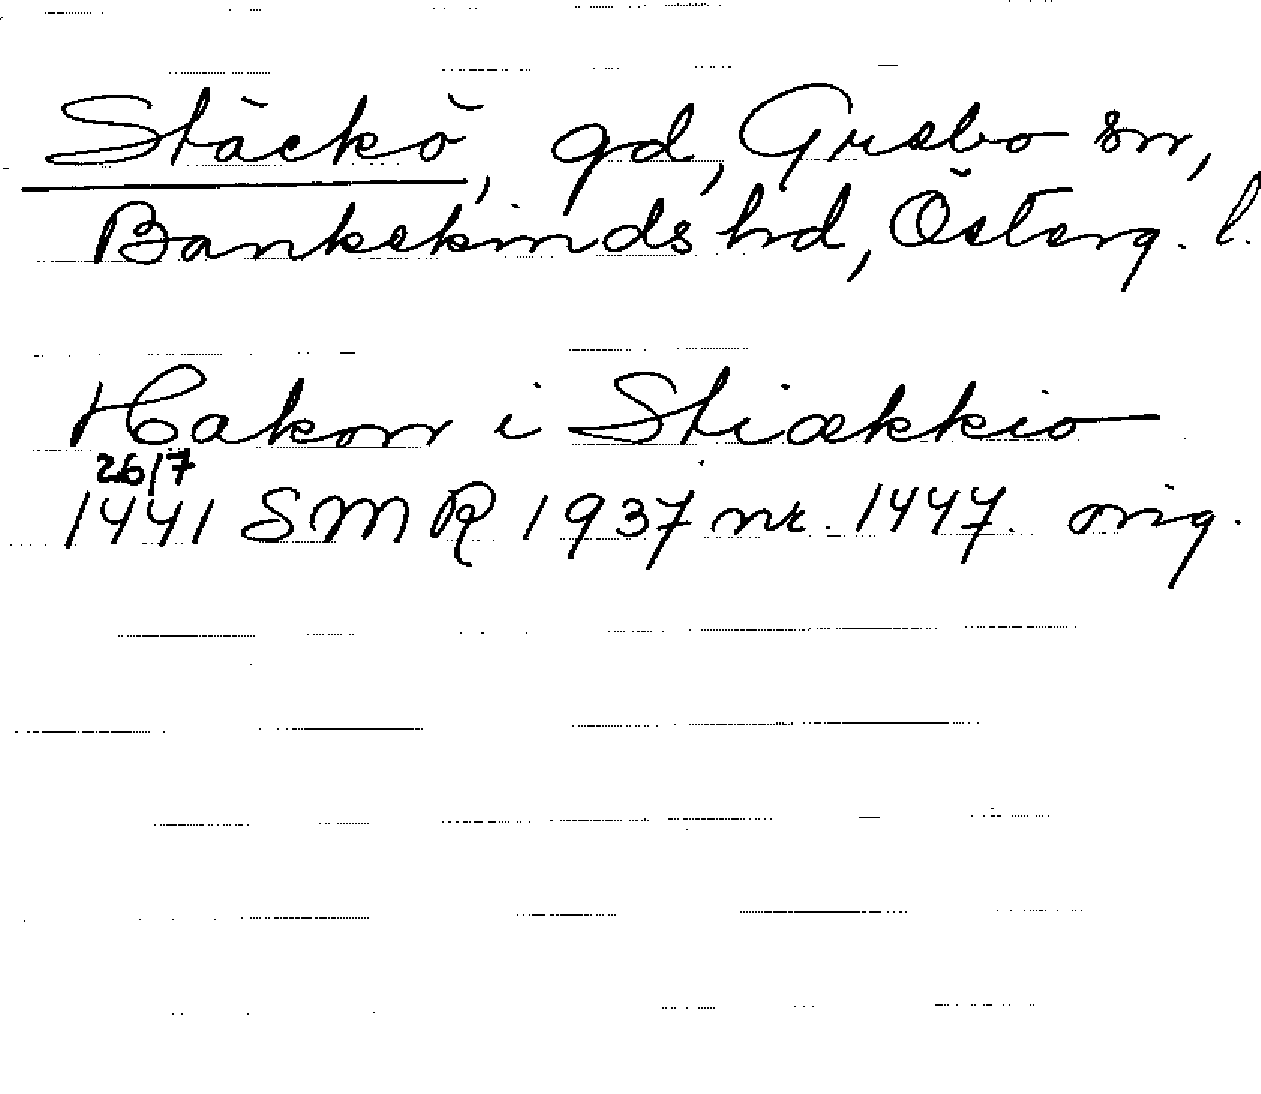 Stäckö, gd, Grebo sn,
Bankekinds hd, Österg. l.
Hakon i Stiækkio
26/7
1441 SMR 1937 nr. 1447. orig.